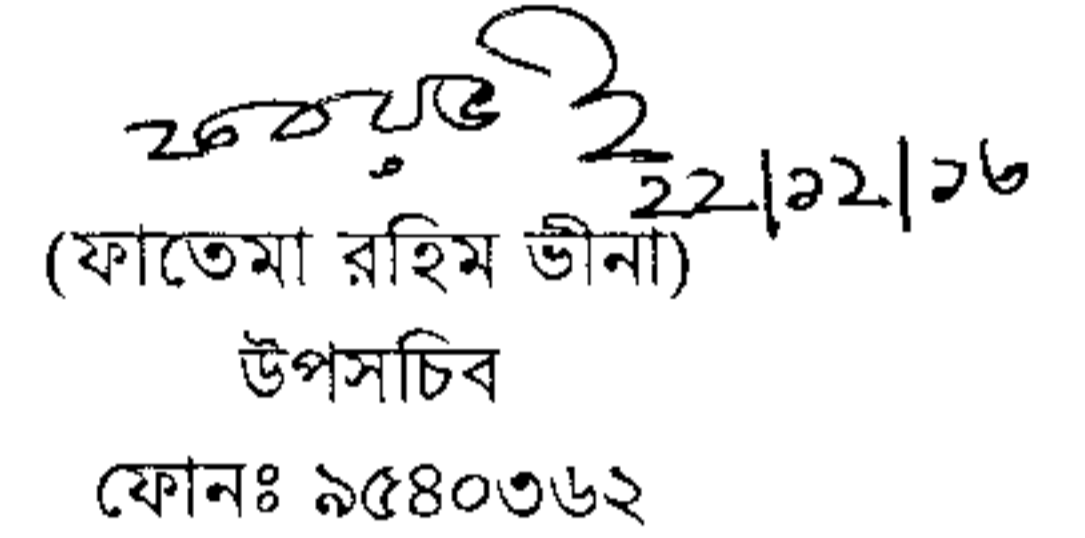 ২২|১২|১৬
(ফাতেমা রহিম ভীনা)
উপসচিব
ফোনঃ ৯৫৪০৩৬২